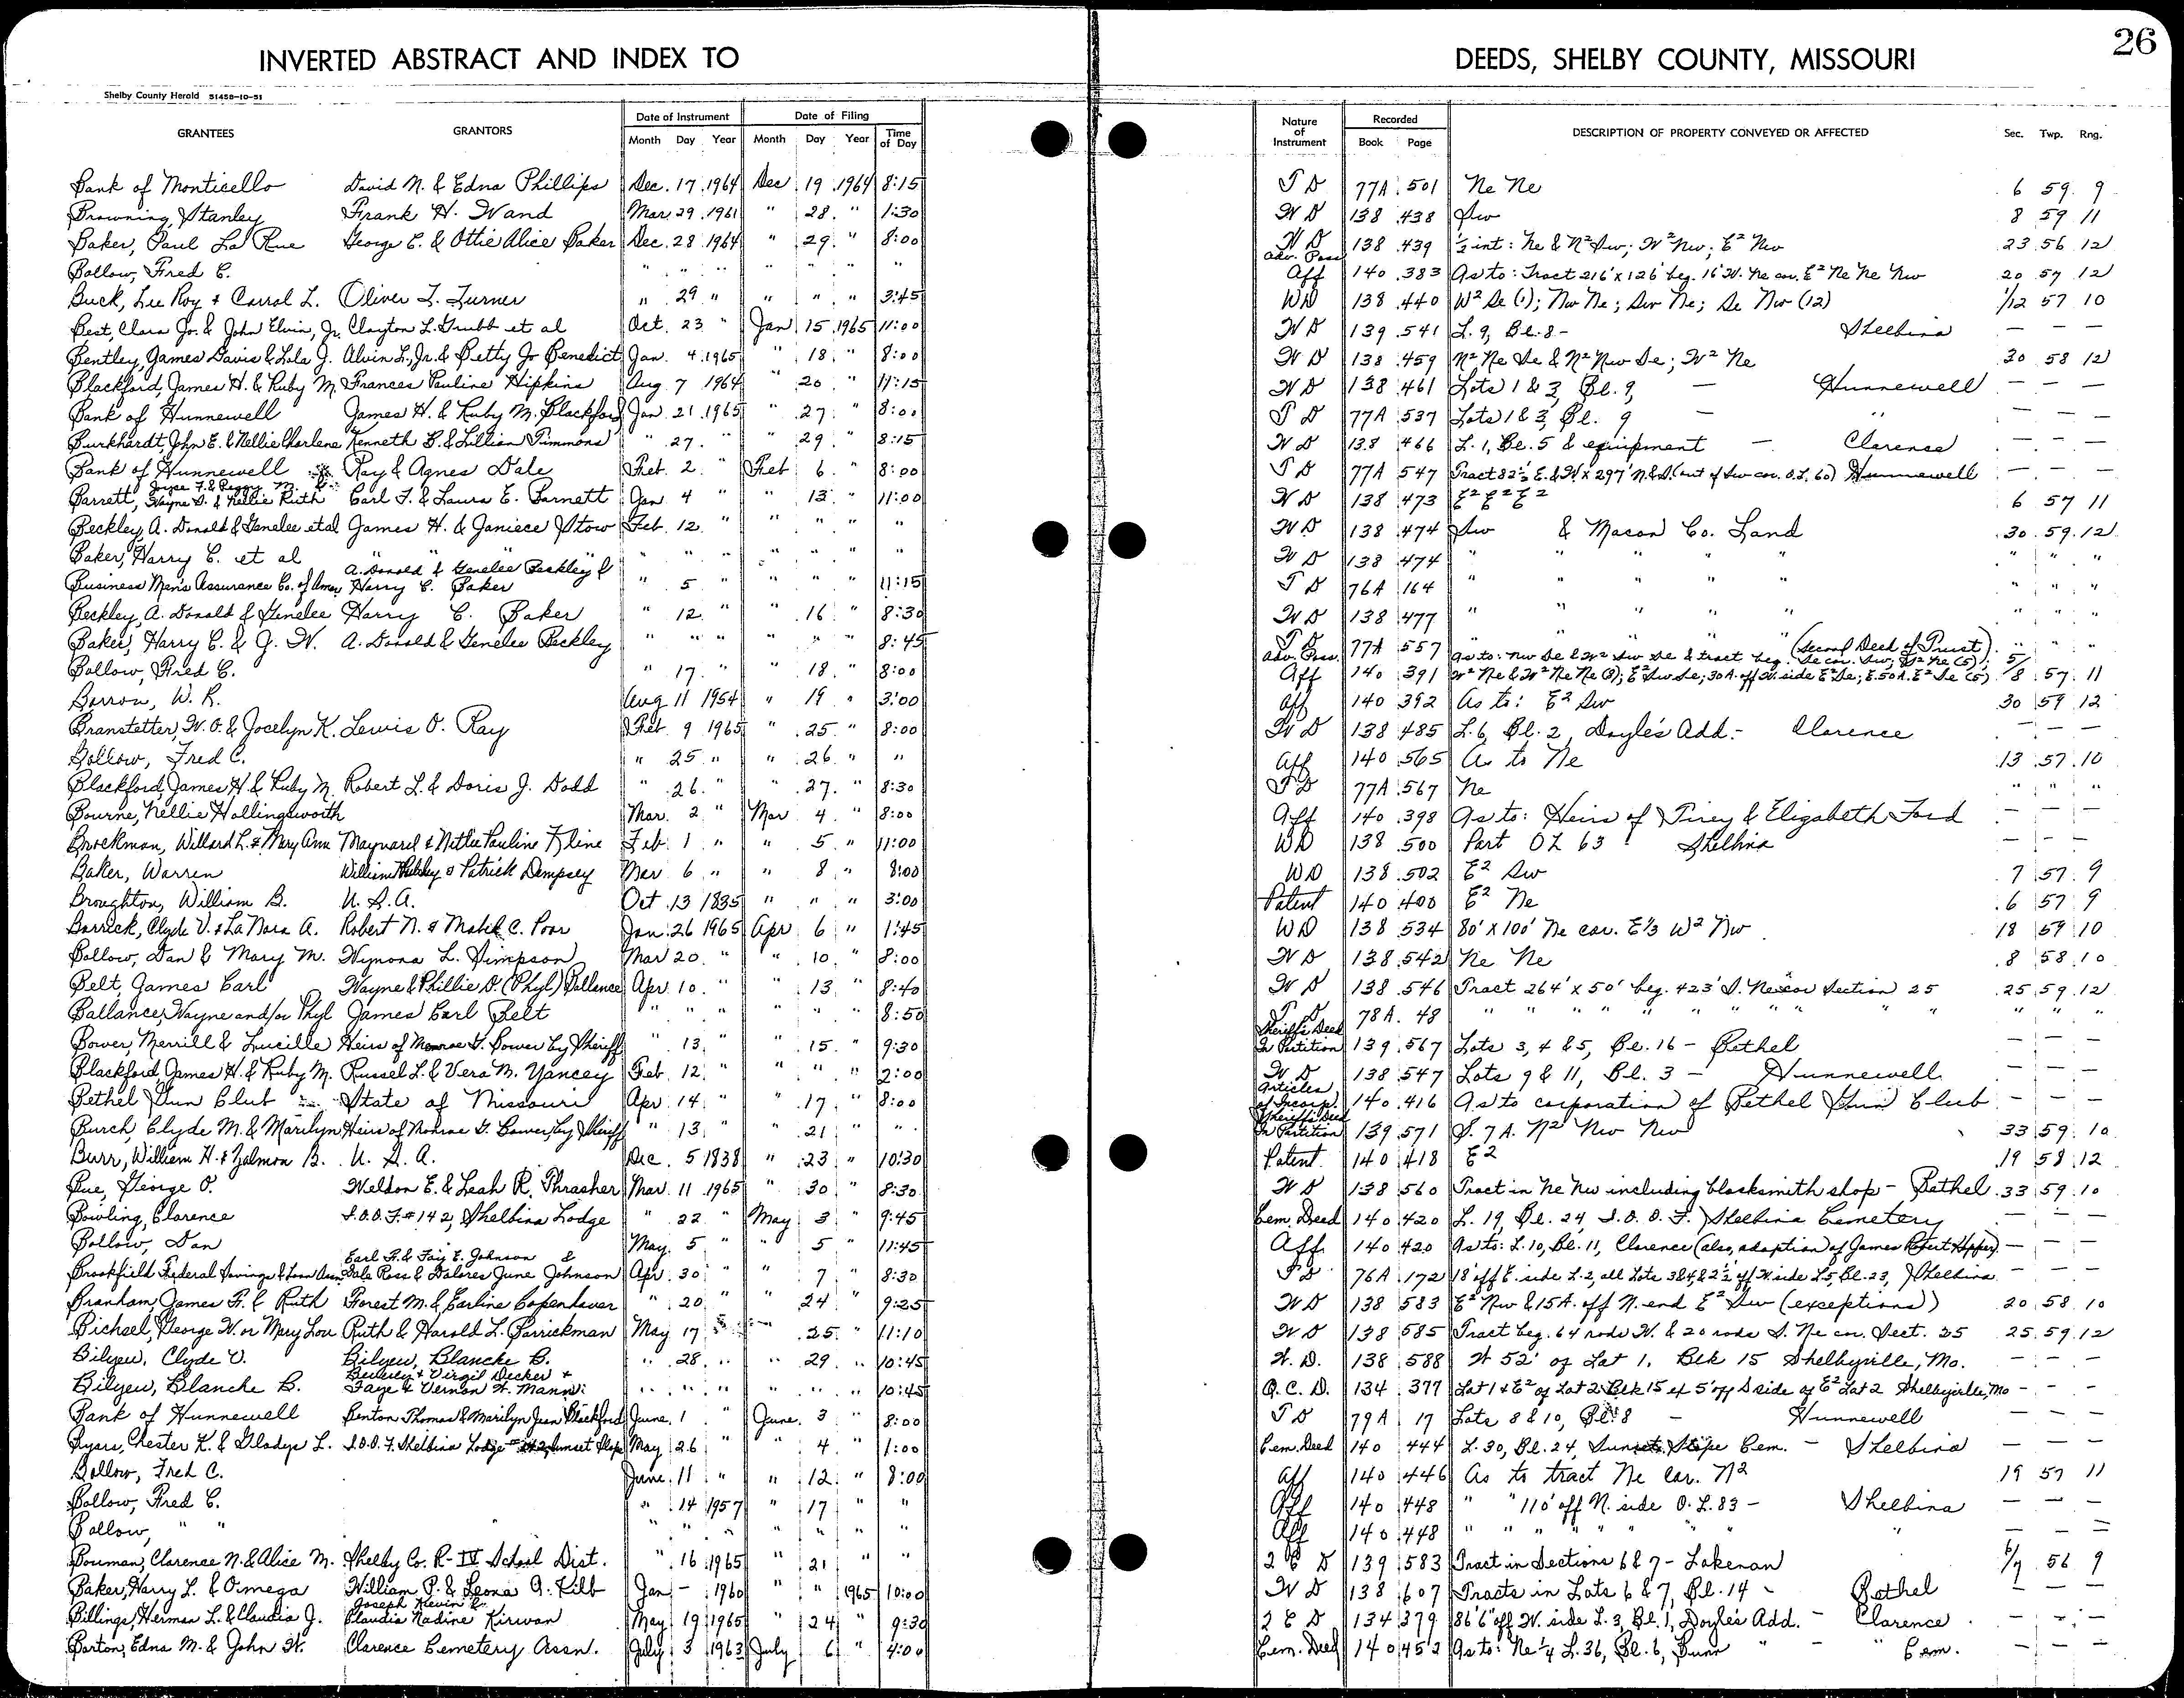 INVERTED ABSTRACT AND INDEX TO DEEDS, SHELBY COUNTY, MISSOURI 26
Shelby County Herald 51458-10-51
GRANTEES GRANTORS Date of Instrument Month Day Year Date of Filing Month Day Year Time of Day Nature of Instrument Recorded Book Page DESCRIPTION OF PROPERTY CONVEYED OR AFFECTED Sec. Twp. Rng.
Bank of Monticello David N. & Edna Phillips Dec. 17 1964 Dec 19 1964 8:15 T D 77A 501 Ne Ne 6 59 9
Browning, Stanley Frank H. Wand Mar. 29 1961 " 28 " 1:30 W D 138 438 Sw 8 59 11
Baker, Paul La Rue George C. & Ottie Alice Baker Dec. 28 1964 " 29 " 8:00 W D 138 439 ½ int: Ne & N² Sw; W² Nw; E² Nw 23 56 12
Bollow, Fred C. " " " " " " " Adv. Poss Aff 140 383 As to: Tract 216' x 126' beg. 16' W. Ne cor. E² Ne Ne Nw 20 57 12
Buck, Lee Roy & Carrol L. Oliver L. Turner " 29 " " " " 3:45 WD 138 440 W² Se (1); Nw Ne; Sw Ne; Se Nw (12) 1/12 57 10
Best, Clara Jo. & John Elvin, Jr. Clayton L. Grubb et al Oct. 23 " Jan 15 1965 11:00 W D 139 541 L. 9, Bl. 8 - Shelbina — — —
Bentley, James Davis & Lola J. Alvin L., Jr. & Betty Jo Benedict Jan. 4 1965 " 18 " 8:00 W D 138 459 N² Ne Se & N² Nw Se; W² Ne 30 58 12
Blackford, James H. & Ruby M. Frances Pauline Hipkins Aug 7 1964 " 20 " 11:15 W D 138 461 Lots 1 & 3, Bl. 9, — Hunnewell — — —
Bank of Hunnewell James H. & Ruby M. Blackford Jan. 21 1965 " 27 " 8:00 T D 77A 537 Lots 1 & 3, Bl. 9 — " — — —
Burkhardt, John E. & Nellie Charlene Kenneth B. & Lillian Timmons " 27 " " 29 " 8:15 W D 138 466 L. 1, Bl. 5 & equipment — Clarence — — —
Bank of Hunnewell Ray & Agnes Dale Feb. 2 " Feb 6 " 8:00 T D 77A 547 Tract 82½' E. & W. x 297' N. & S. (out of Sw cor. O.L. 60) Hunnewell — — —
Joyce F. & Peggy M. &
Barrett, Wayne D. & Nellie Ruth Carl F. & Laura E. Barnett Jan. 4 " " 13 " 11:00 W D 138 473 E² E² E² 6 57 11
Beckley, A. Donald & Genelee et al James H. & Janiece Stow Feb. 12 " " " " " W D 138 474 Sw & Macon Co. Land 30 59 12
Baker, Harry C. et al " " " " " " " " " W D 138 474 " " " " " " " "
A. Donald & Genelee Beckley &
Business Men's Assurance Co. of Amer Harry C. Baker " 5 " " " " 11:15 T D 76A 164 " " " " " " " "
Beckley, A. Donald & Genelee Harry C. Baker " 12 " " 16 " 8:30 W D 138 477 " " " " " " " "
Baker, Harry C. & J. W. A. Donald & Genelee Beckley " " " " " " 8:45 T D 77A 557 " " " " " (Second Deed of Trust) " " "
Bollow, Fred C. " 17 " " 18 " 8:00 Adv. Poss. Aff 140 391 As to: Nw Se & W² Sw Se & tract beg. Se cor. Sw; W² Ne (5); W² Ne & W² Ne Ne (8); E² Sw Se; 30 A. off W. side E² Se; E. 50 A. E² Se (5) 5/8 57 11
Barrow, W. R. Aug 11 1954 " 19 " 3:00 Aff 140 392 As to: E² Sw 30 59 12
Branstetter, W. O. & Jocelyn K. Lewis O. Ray Feb. 9 1965 " 25 " 8:00 W D 138 485 L. 6, Bl. 2, Doyle's Add. - Clarence — — —
Bollow, Fred C. " 25 " " 26 " " Aff 140 565 As to Ne 13 57 10
Blackford, James H. & Ruby M. Robert L. & Doris J. Dodd " 26 " " 27 " 8:30 T D 77A 567 Ne " " "
Bourne, Nellie Hollingsworth Mar. 2 " Mar 4 " 8:00 Aff 140 398 As to: Heirs of Tirey & Elizabeth Ford — — —
Brockman, Willard L. & Mary Ann Maynard & Nettie Pauline Kline Feb. 1 " " 5 " 11:00 WD 138 500 Part OL 63 Shelbina — — —
Baker, Warren & Patrick Dempsey Mar 6 " " 8 " 8:00 WD 138 502 E² Sw 7 57 9
Broughton, William B. U. S. A. Oct 13 1835 " " " 3:00 Patent 140 400 E² Ne 6 57 9
Barrick, Clyde V. & LaNora A. Robert N. & Mabel C. Poor Jan. 26 1965 Apr 6 " 1:45 WD 138 534 80' x 100' Ne cor. E⅓ W² Nw 18 59 10
Bollow, Dan & Mary M. Wynona L. Simpson Mar 20 " " 10 " 8:00 W D 138 542 Ne Ne 8 58 10
Belt, James Carl Wayne & Phillie D. (Phyl) Ballance Apr. 10 " " 13 " 8:40 W D 138 546 Tract 264' x 50' beg. 423' S. Ne cor Section 25 25 59 12
Ballance, Wayne and/or Phyl James Carl Belt " " " " " " 8:50 T D 78A 48 " " " " " " " " " " "
Bower, Merrill & Lucille Heirs of Monroe G. Bower by Sheriff " 13 " " 15 " 9:30 Sheriff's Deed In Partition 139 567 Lots 3, 4 & 5, Bl. 16 - Bethel — — —
Blackford James H. & Ruby M. Russel L. & Vera M. Yancey Feb. 12 " " " " 2:00 W D 138 547 Lots 9 & 11, Bl. 3 - Hunnewell — — —
Bethel Gun Club State of Missouri Apr 14 " " 17 " 8:00 Articles of Incorp. 140 416 As to corporation of Bethel Gun Club — — —
Burch, Clyde M. & Marilyn Heirs of Monroe G. Bower, by Sheriff " 13 " " 21 " " Sheriff's Deed In Partition 139 571 S. 7 A. N² Nw Nw 33 59 10
Burr, William H. & Zalmon B. U. S. A. Dec. 5 1838 " 23 " 10:30 Patent 140 418 E² 19 58 12
Bue, George O. Weldon E. & Leah R. Thrasher Mar. 11 1965 " 30 " 8:30 W D 138 560 Tract in Ne Nw including blacksmith shop - Bethel 33 59 10
Bowling, Clarence I.O.O.F. #142, Shelbina Lodge " 22 " May 3 " 9:45 Cem. Deed 140 420 L. 19, Bl. 24, I.O.O.F. Shelbina Cemetery — — —
Bollow, Dan May 5 " " 5 " 11:45 Aff. 140 420 As to: L. 10, Bl. 11, Clarence (also, adoption of James Robert ) — — —
Earl H. & Fay E. Johnson &
Brookfield Federal Savings & Loan Assn. Dale Ross & Dalores June Johnson Apr. 30 " " 7 " 8:30 T D 76A 172 18' off E. side L. 2, all Lots 3 & 4 & 2½' off W side L. 5, Bl. 23, Shelbina — — —
Branham, James F. & Ruth Forest M. & Earline Copenhaver " 20 " " 24 " 9:25 W D 138 583 E² Nw & 15 A. off N. end E² Sw (exceptions) 20 58 10
Bichsel, George W. or Mary Lou Ruth & Harold L. Barrickman May 17 " " 25 " 11:10 W D 138 585 Tract beg. 64 rods W. & 20 rods S. Ne cor. Sect. 25 25 59 12
Bilyeu, Clyde V. Bilyeu, Blanche B. " 28 " " 29 " 10:45 W. D. 138 588 W 52' of Lot 1, Blk 15 Shelbyville, Mo. — — —
Beverly & Virgil Decker &
Bilyeu, Blanche B. Faye & Vernon H. Mann " " " " " " 10:45 Q. C. D. 134 377 Lot 1 & E² of Lot 2 Blk 15 ex 5' off S side of E² Lot 2 Shelbyville, Mo — — —
Bank of Hunnewell Benton Thomas & Marilyn Jean Blackford June 1 " June 3 " 8:00 T D 79A 17 Lots 8 & 10, Bl. 8 — Hunnewell — — —
Byars, Chester K. & Gladys L. I.O.O.F. Shelbina Lodge #142, Sunset Slope May 26 " " 4 " 1:00 Cem. Deed 140 444 L. 30, Bl. 24, Sunset Slope Cem. — Shelbina — — —
Bollow, Fred C. June 11 " " 12 " 8:00 Aff 140 446 As to tract Ne cor. N² 19 57 11
Bollow, Fred C. " 14 1957 " 17 " " Aff 140 448 " " 110' off N. side O.L. 83 - Shelbina — — —
Bollow, " " " " " " " " " Aff 140 448 " " " " " " " " — — —
Bouman, Clarence N. & Alice M. Shelby Co. R-IV School Dist. " 16 1965 " 21 " " 2 C D 139 583 Tract in Sections 6 & 7 - Lakenan 6/7 56 9
Baker, Harry L. & Omega William P. & Leona A. Kilb Jan — 1960 " " 1965 10:00 W D 138 607 Tracts in Lots 6 & 7, Bl. 14 - Bethel — — —
Joseph Kevin &
Billings, Herman L. & Claudia J. Claudia Nadine Kirwan May 19 1965 " 24 " 9:30 2 C D 134 379 86'6" off W. side L. 3, Bl. 1, Doyle's Add. - Clarence — — —
Barton, Edna M. & John H. Clarence Cemetery Assn. July 3 1963 July 6 " 4:00 Cem. Deed 140 452 As to: Ne ¼ L. 36, Bl. 6, Bunn " - " Cem. — — —